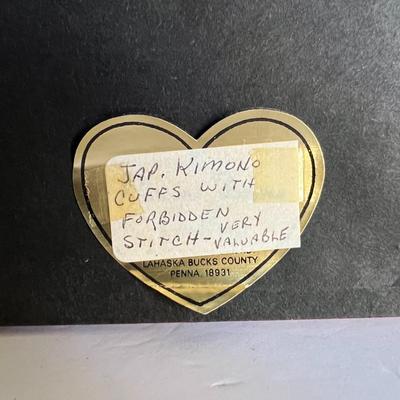 JAP. KIMONO
CUFFS WITH
FORBIDDEN
STITCH - VERY
VALUABLE
LAHASKA BUCKS COUNTY
PENNA. 18931